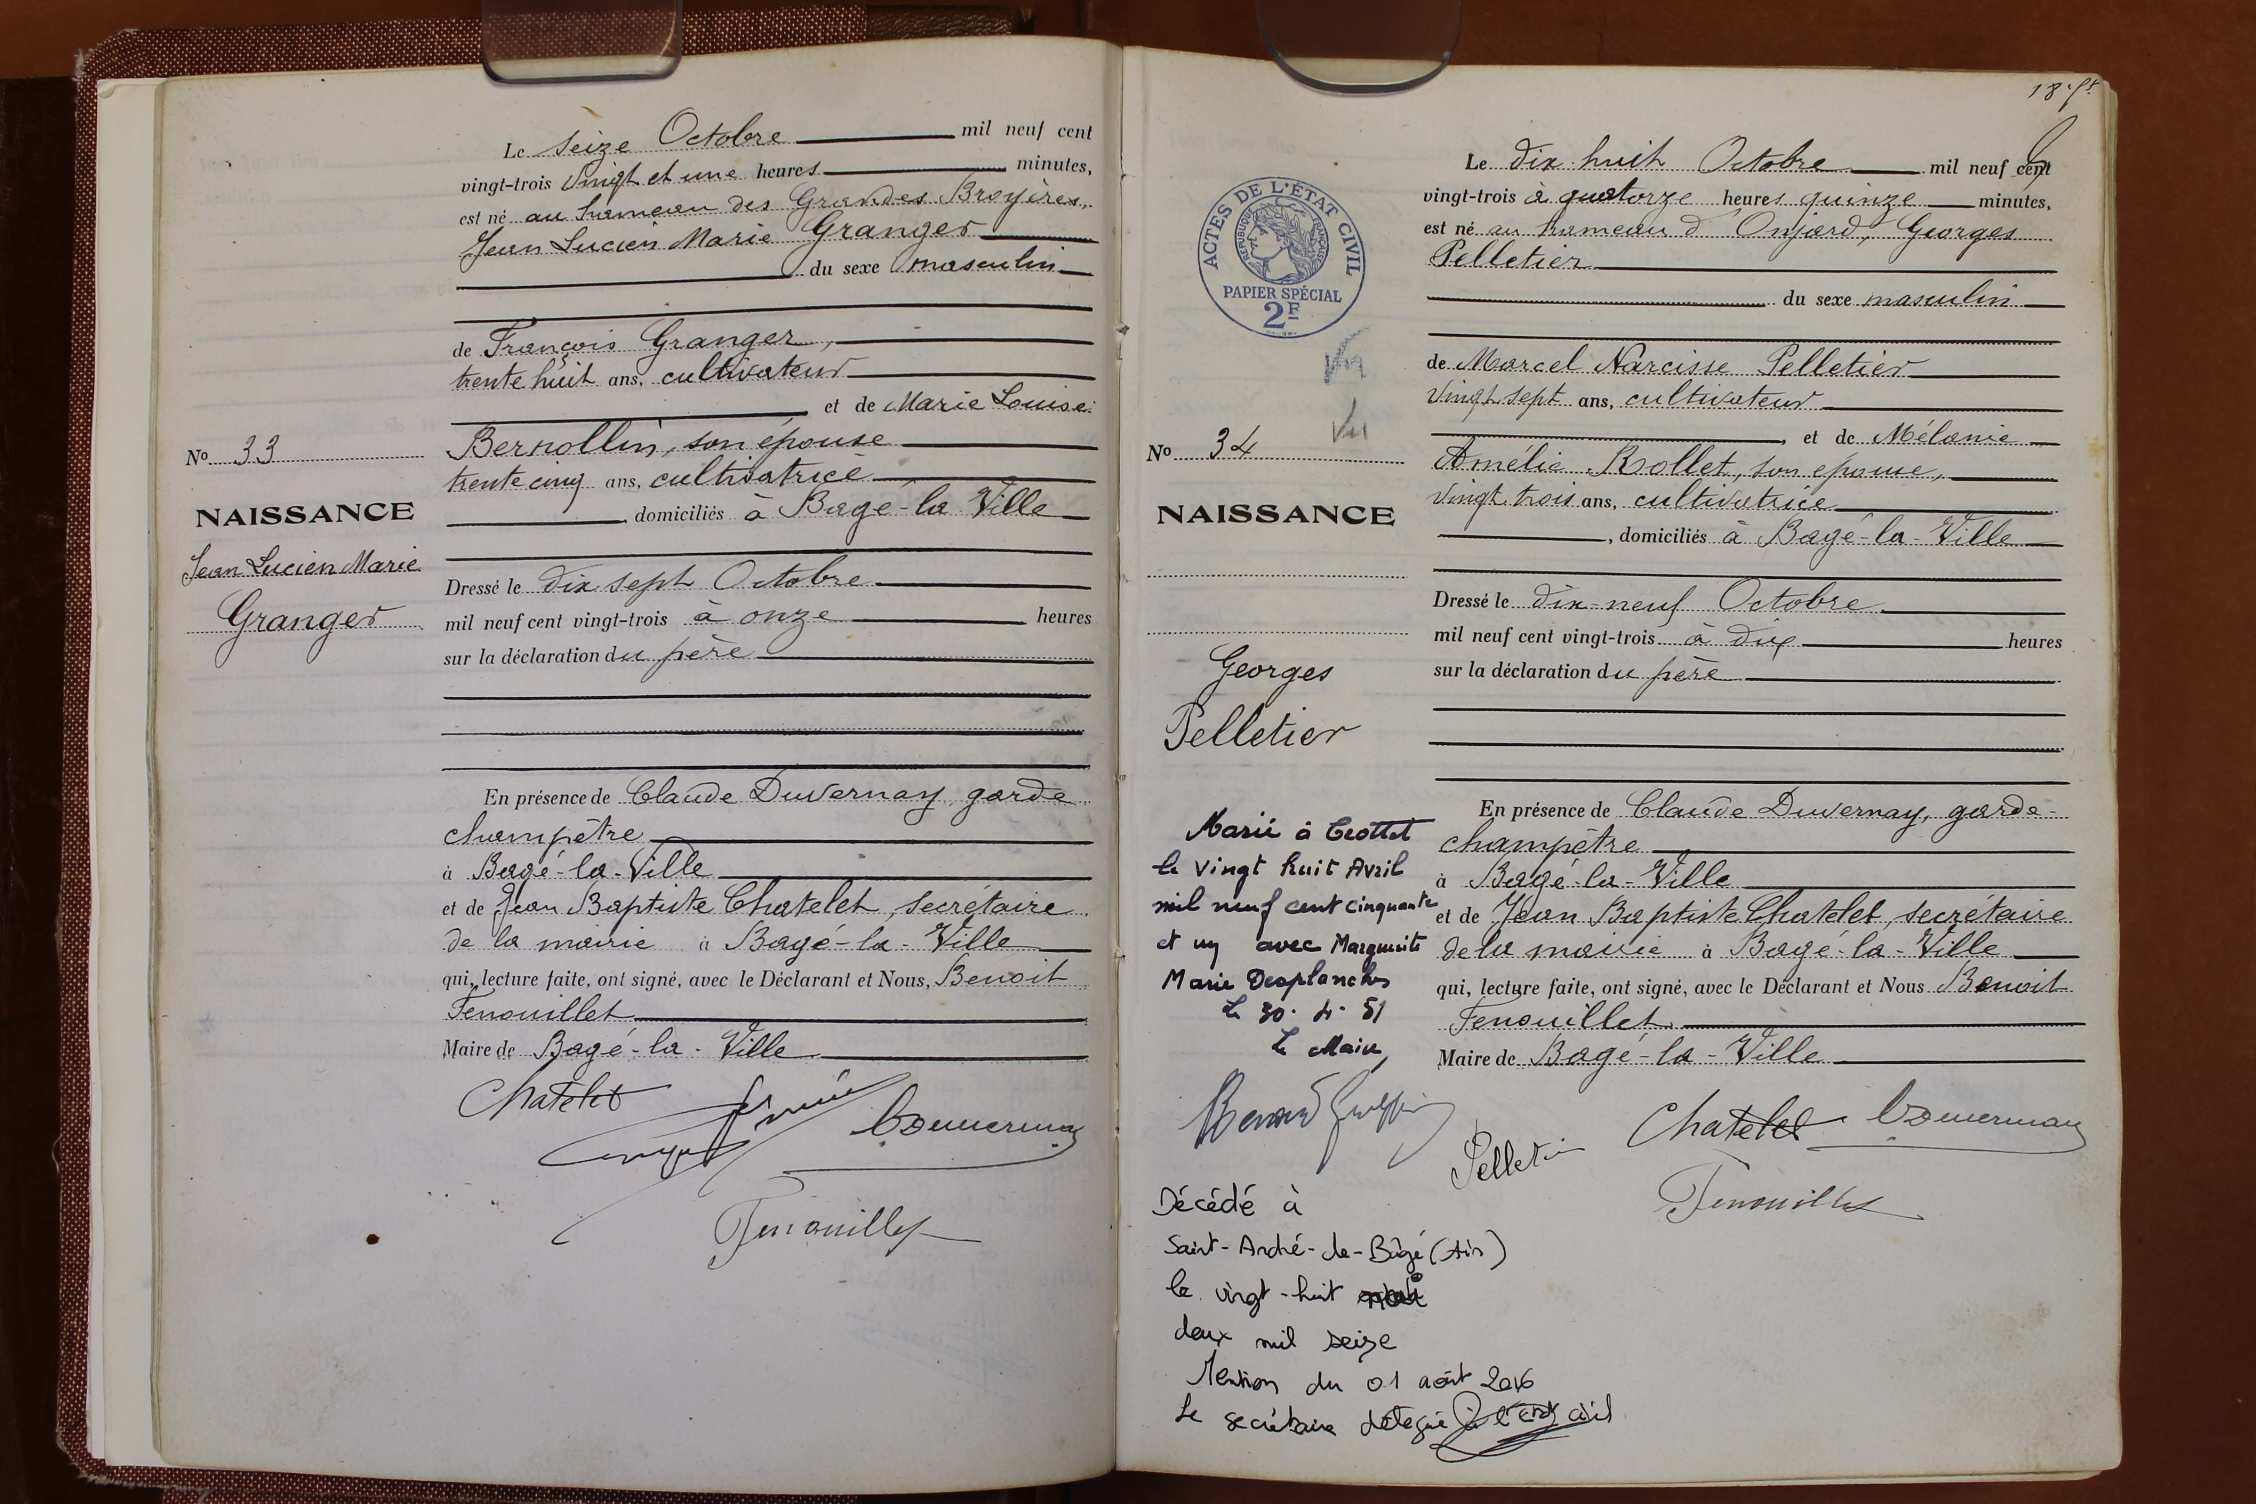 Le seize Octobre mil neuf cent
vingt-trois Vingt et une heures minutes,
est né au hameau des Grandes Broyères,
Jean Lucien Marie Granger
du sexe masculin
de François Granger,
trente huit ans, cultivateur
et de Marie Louise
No 33
Bernollin, son épouse
trente cinq ans, cultivatrice
NAISSANCE
domiciliés à Bagé-la-Ville
Jean Lucien Marie
Granger
Dressé le dix sept Octobre
mil neuf cent vingt-trois à onze heures
sur la déclaration du père
En présence de Claude Duvernay, garde
champêtre
à Bagé-la-Ville
et de Jean Baptiste Chatelet, secrétaire
de la mairie à Bagé-la-Ville
qui, lecture faite, ont signé, avec le Déclarant et Nous, Benoit
Fenouillet
Maire de Bagé-la-Ville
Chatelet
Fenouillet
18
Le dix huit Octobre mil neuf cent
vingt-trois à quatorze heures quinze minutes,
est né au hameau d'Onjard, Georges
Pelletier
du sexe masculin
ACTES DE L'ÉTAT CIVIL
RÉPUBLIQUE FRANÇAISE
PAPIER SPÉCIAL
2F
Vu
Vu
de Marcel Narcisse Pelletier
Vingt sept ans, cultivateur
et de Mélanie
No 34
Amélie Rollet, son épouse,
Vingt trois ans, cultivatrice
NAISSANCE
, domiciliés à Bagé-la-Ville
Dressé le dix-neuf Octobre
mil neuf cent vingt-trois à dix heures
sur la déclaration du père
Georges
Pelletier
En présence de Claude Duvernay, garde-
champêtre
à Bagé-la-Ville
et de Jean Baptiste Chatelet, secrétaire
de la mairie à Bagé-la-Ville
qui, lecture faite, ont signé, avec le Déclarant et Nous Benoit
Fenouillet
Maire de Bagé-la-Ville
Marié à Crottet
le vingt huit Avril
mil neuf cent cinquante
et un avec Marguerite
Marie Desplanches
Le 30.4.51
Le Maire,
Pelletier
Chatelet
Fenouillet
Décédé à
Saint-André-de-Bâgé (Ain)
le vingt-huit
deux mil seize
Mention du 01 août 2016
Le secrétaire délégué à l'état civil